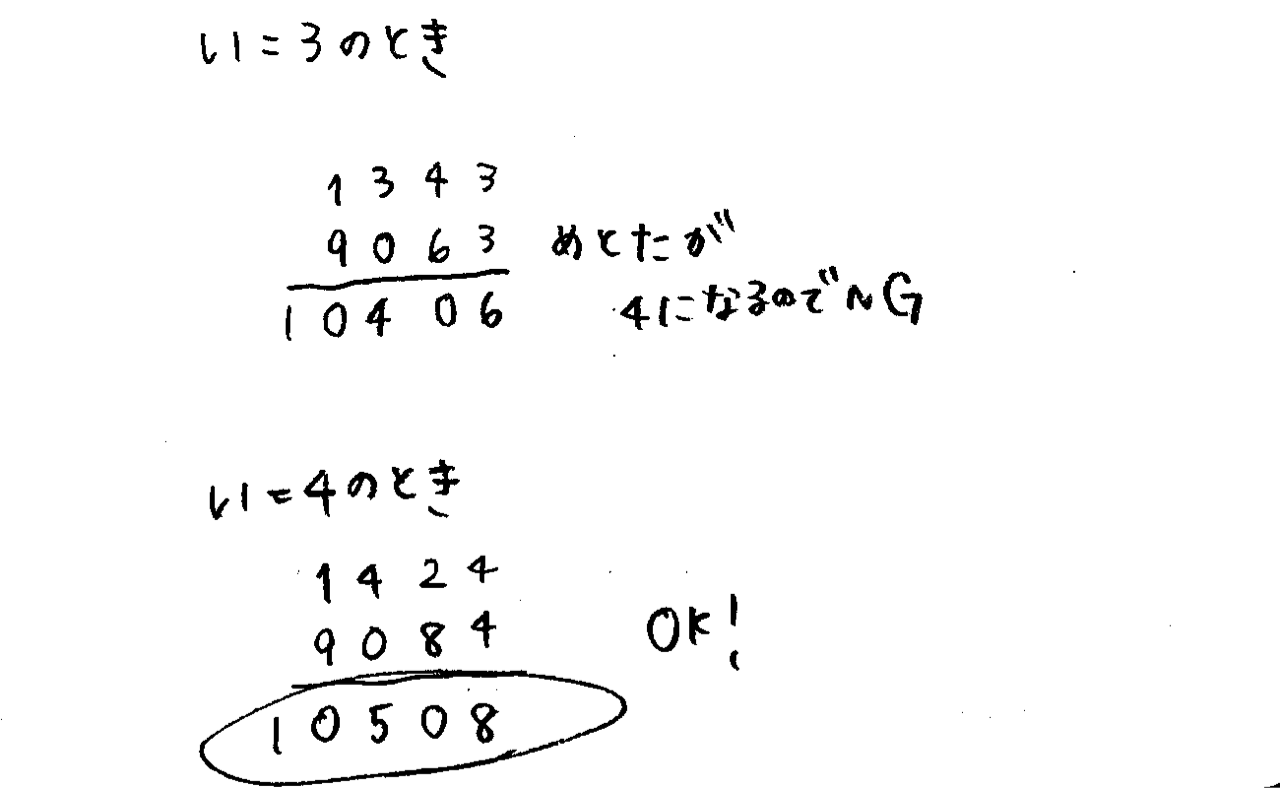 い=3のとき
1 3 4 3
9 0 6 3 めとたが
1 0 4 0 6 4になるのでNG
い=4のとき
1 4 2 4
9 0 8 4 OK!
1 0 5 0 8